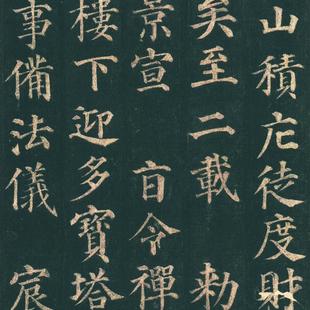 山積庀徒度財
矣至二載 勅
景宣 旨令禪
樓下迎多寶塔
事備法儀 宸